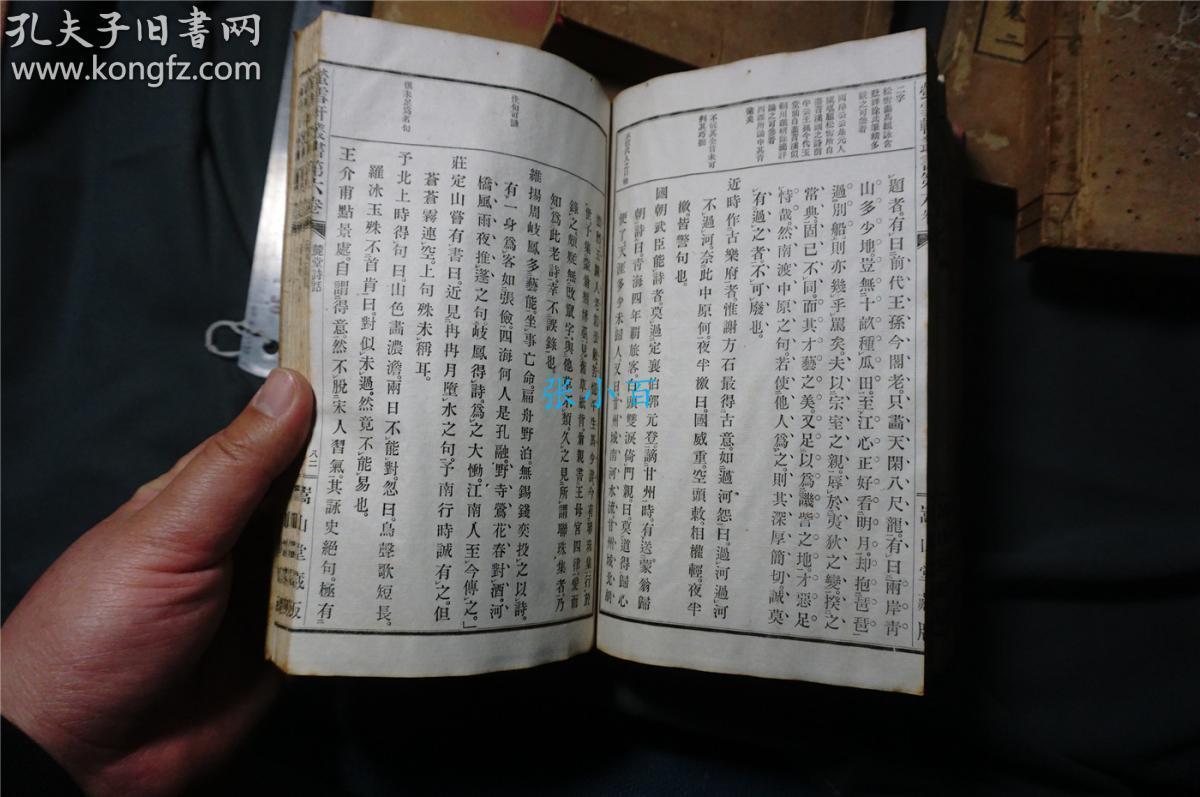 孔夫子旧书网
www.kongfz.com
張小百
二字
題者有曰前代王孫今閣老只畵天閑八尺龍有曰兩岸青
山多少地豈無十畝種瓜田至江心正好看明月却抱琵琶
過別船則亦幾乎罵矣夫以宗室之親辱於夷狄之變揆之
常典固已不同而其才藝之美又足以為譏訾之地才惡足
恃哉然南渡中原之句若使他人為之則其深厚簡切誠莫
有過之者不可廢也
近時作古樂府者惟謝方石最得古意如過河怨曰過河過河
不過河奈此中原何夜半檄曰國威重空頭敕相權輕夜半
檄皆警句也
國朝武臣能詩者莫過定襄伯郭元登謫甘州時有送蒙翁歸
朝詩曰青海四年羈旅客白頭雙淚倚門親曰莫道得歸心
便了天涯多少未歸人又曰甘州城南河水流甘州城北
佳句可誦
俱未足為名句
知為此老詩幸不誤錄也
維揚周岐鳳多藝能坐事亡命扁舟野泊無錫錢奕投之以詩
有一身為客如張儉四海何人是孔融野寺鶯花春對酒河
橋風雨夜推蓬之句岐鳳得詩為之大慟江南人至今傳之
莊定山嘗有書曰近見冉冉月墮水之句予南行時誠有之但
蒼蒼霧連空上句殊未稱耳
予北上時得句曰山色畵濃澹兩日不能對忽曰鳥聲歌短長
羅冰玉殊不首肯曰對似未過然竟不能易也
王介甫點景處自謂得意然不脫宋人習氣其詠史絕句極有
螢雪軒叢書第六卷
麓堂詩話
八二
嵩山堂藏版